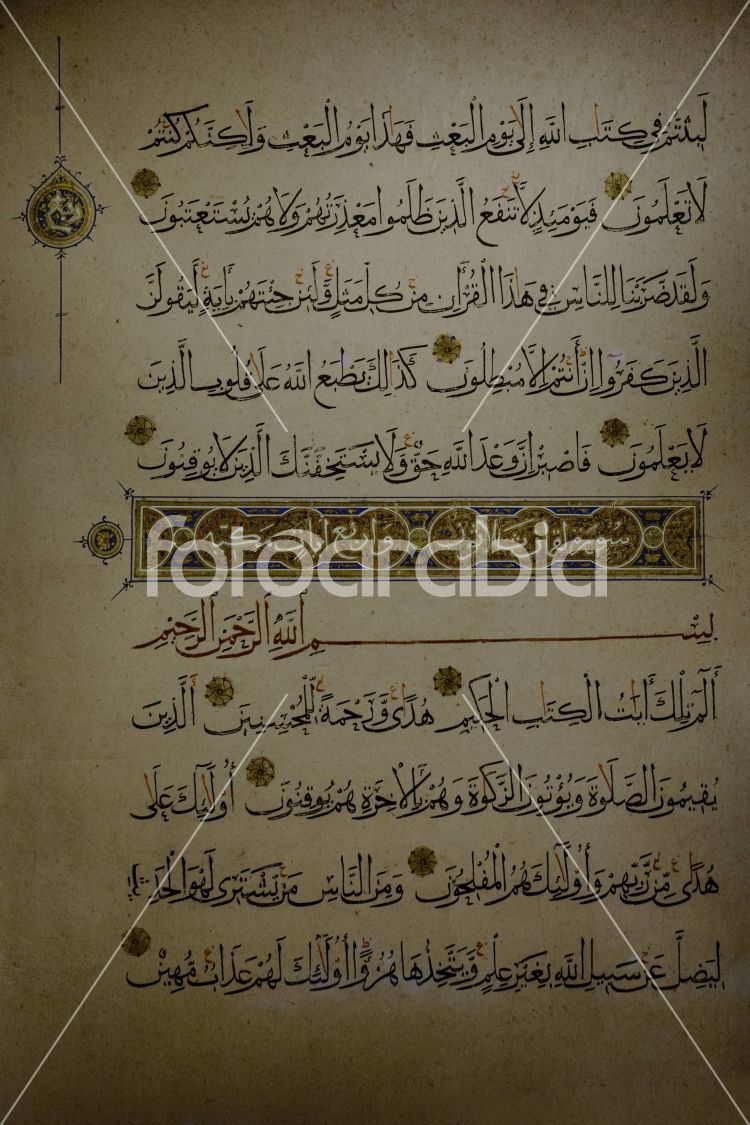 لَبِثْتُمْ فِي كِتَابِ اللَّهِ إِلَى يَوْمِ الْبَعْثِ فَهَذَا يَوْمُ الْبَعْثِ وَلَكِنَّكُمْ كُنْتُمْ
لَا تَعْلَمُونَ فَيَوْمَئِذٍ لَا تَنْفَعُ الَّذِينَ ظَلَمُوا مَعْذِرَتُهُمْ وَلَا هُمْ يُسْتَعْتَبُونَ
وَلَقَدْ ضَرَبْنَا لِلنَّاسِ فِي هَذَا الْقُرْآنِ مِنْ كُلِّ مَثَلٍ وَلَئِنْ جِئْتَهُمْ بِآيَةٍ لَيَقُولَنَّ
الَّذِينَ كَفَرُوا إِنْ أَنْتُمْ إِلَّا مُبْطِلُونَ كَذَلِكَ يَطْبَعُ اللَّهُ عَلَى قُلُوبِ الَّذِينَ
لَا يَعْلَمُونَ فَاصْبِرْ إِنَّ وَعْدَ اللَّهِ حَقٌّ وَلَا يَسْتَخِفَّنَّكَ الَّذِينَ لَا يُوقِنُونَ
سورة لقمن
fotoarabia
بِسْمِ اللَّهِ الرَّحْمَنِ الرَّحِيمِ
الٓمٓ تِلْكَ آيَاتُ الْكِتَابِ الْحَكِيمِ هُدًى وَرَحْمَةً لِلْمُحْسِنِينَ الَّذِينَ
يُقِيمُونَ الصَّلٰوةَ وَيُؤْتُونَ الزَّكٰوةَ وَهُمْ بِالْآخِرَةِ هُمْ يُوقِنُونَ أُولَئِكَ عَلَى
هُدًى مِنْ رَبِّهِمْ وَأُولَئِكَ هُمُ الْمُفْلِحُونَ وَمِنَ النَّاسِ مَنْ يَشْتَرِي لَهْوَ الْحَدِيثِ
لِيُضِلَّ عَنْ سَبِيلِ اللَّهِ بِغَيْرِ عِلْمٍ وَيَتَّخِذُهَا هُزُوًا أُولَئِكَ لَهُمْ عَذَابٌ مُهِينٌ